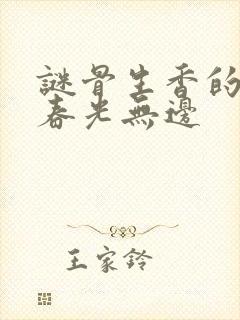 謎骨生香的
春光無邊
王家鈴